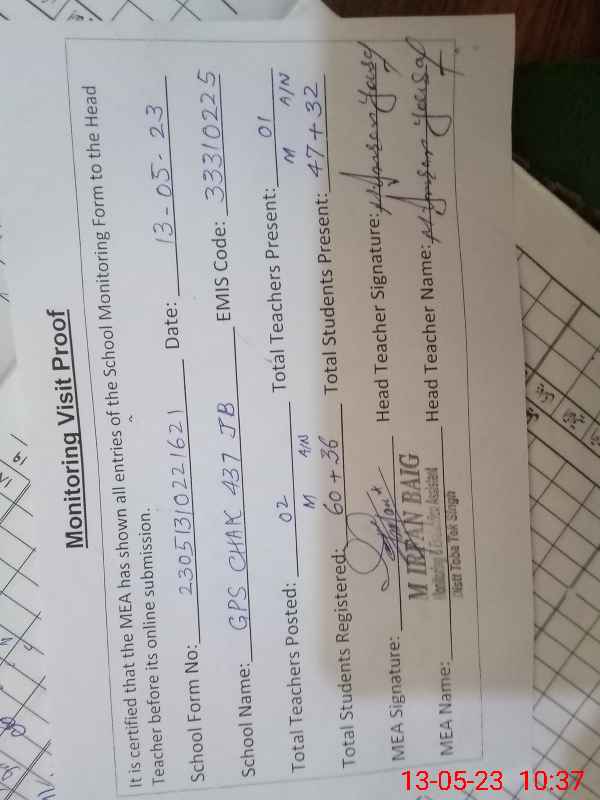 Monitoring Visit Proof
It is certified that the MEA has shown all entries of the School Monitoring Form to the Head
Teacher before its online submission.
School Form No: 23051310221621 Date: 13-05-23
School Name: GPS CHAK 437 JB EMIS Code: 33310225
Total Teachers Posted: 02 Total Teachers Present: 01
M A/N M A/N
Total Students Registered: 60 + 36 Total Students Present: 47 + 32
MEA Signature: Head Teacher Signature:
M IRFAN BAIG
Distt Toba Tek Singh
MEA Name: Head Teacher Name:
13-05-23 10:37